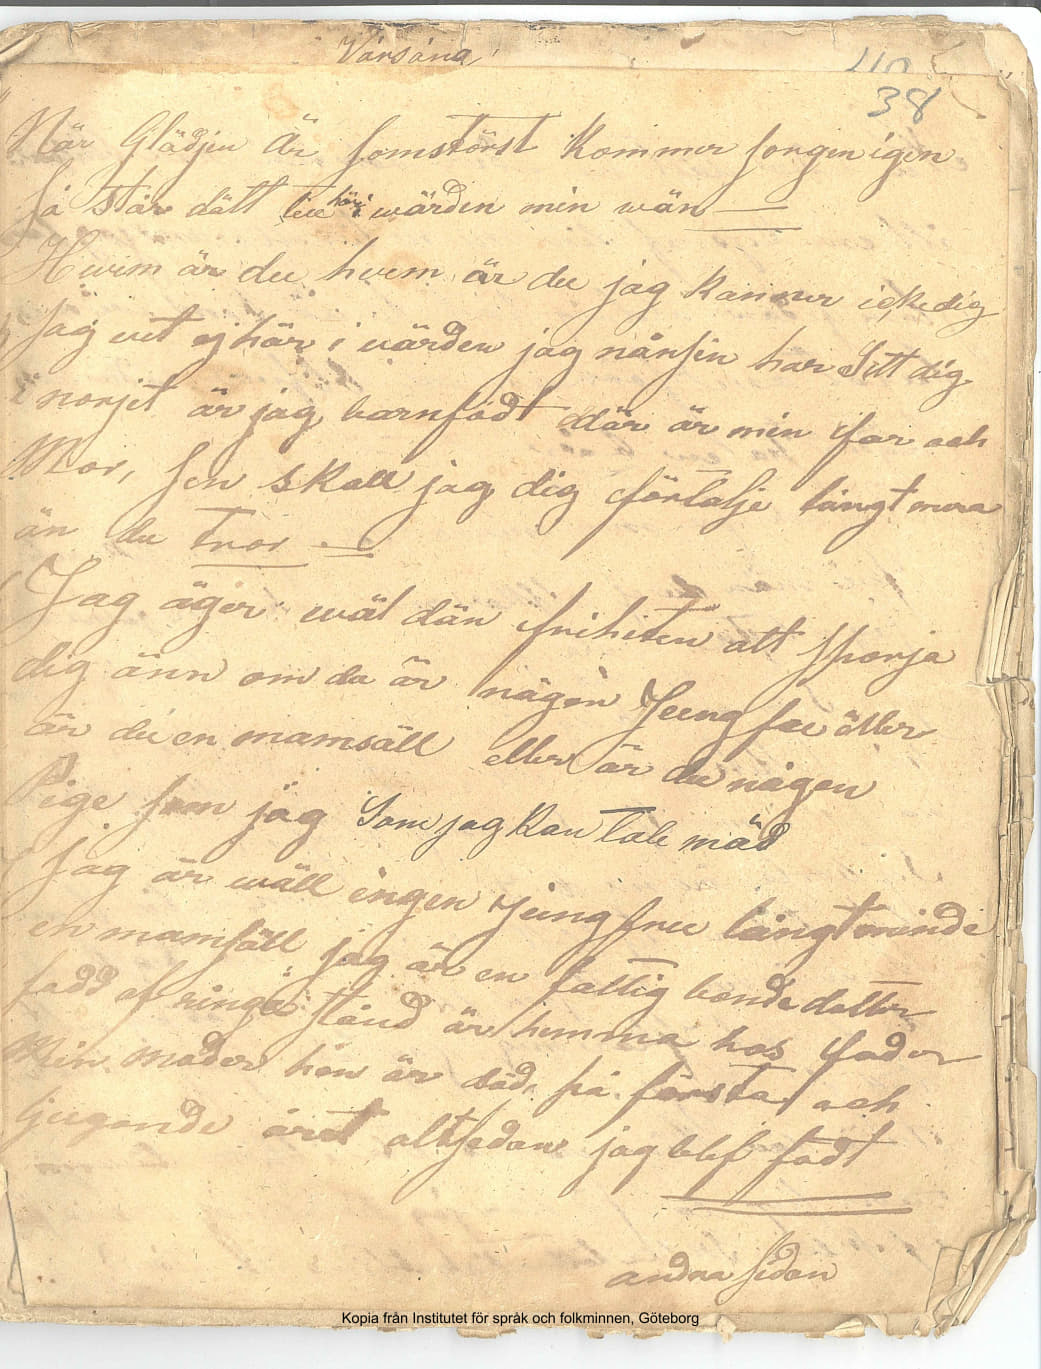 Vårsång
110
38
När Glädjen är somstörst kommer sorgen igen
så står dått till här i wärden min wän
Hwem är du hvem är du jag känner icke dig
jag vet ej här i värden jag nånsin har Sitt dig
i norjet är jag barnfödt där är min far ach
Mor, sen skall jag dig förtälje långt mera
än du tror
Jag äger wäl dän friheten att sporja
dig änn om du är någon Jungfru äller
är du en mamsäll eller är du någen
Pige som jag Som jag kan tale mäd
jag är wäll ingen jungfru långt mindè
en mamsäll jag är en fattig bonde datter
fådd af ringa stånd är hemma hos fader
Min moder hon är död på första ach
tjugonde året altsedan jag blef fadt
andra sidan
Kopia från Institutet för språk och folkminnen, Göteborg